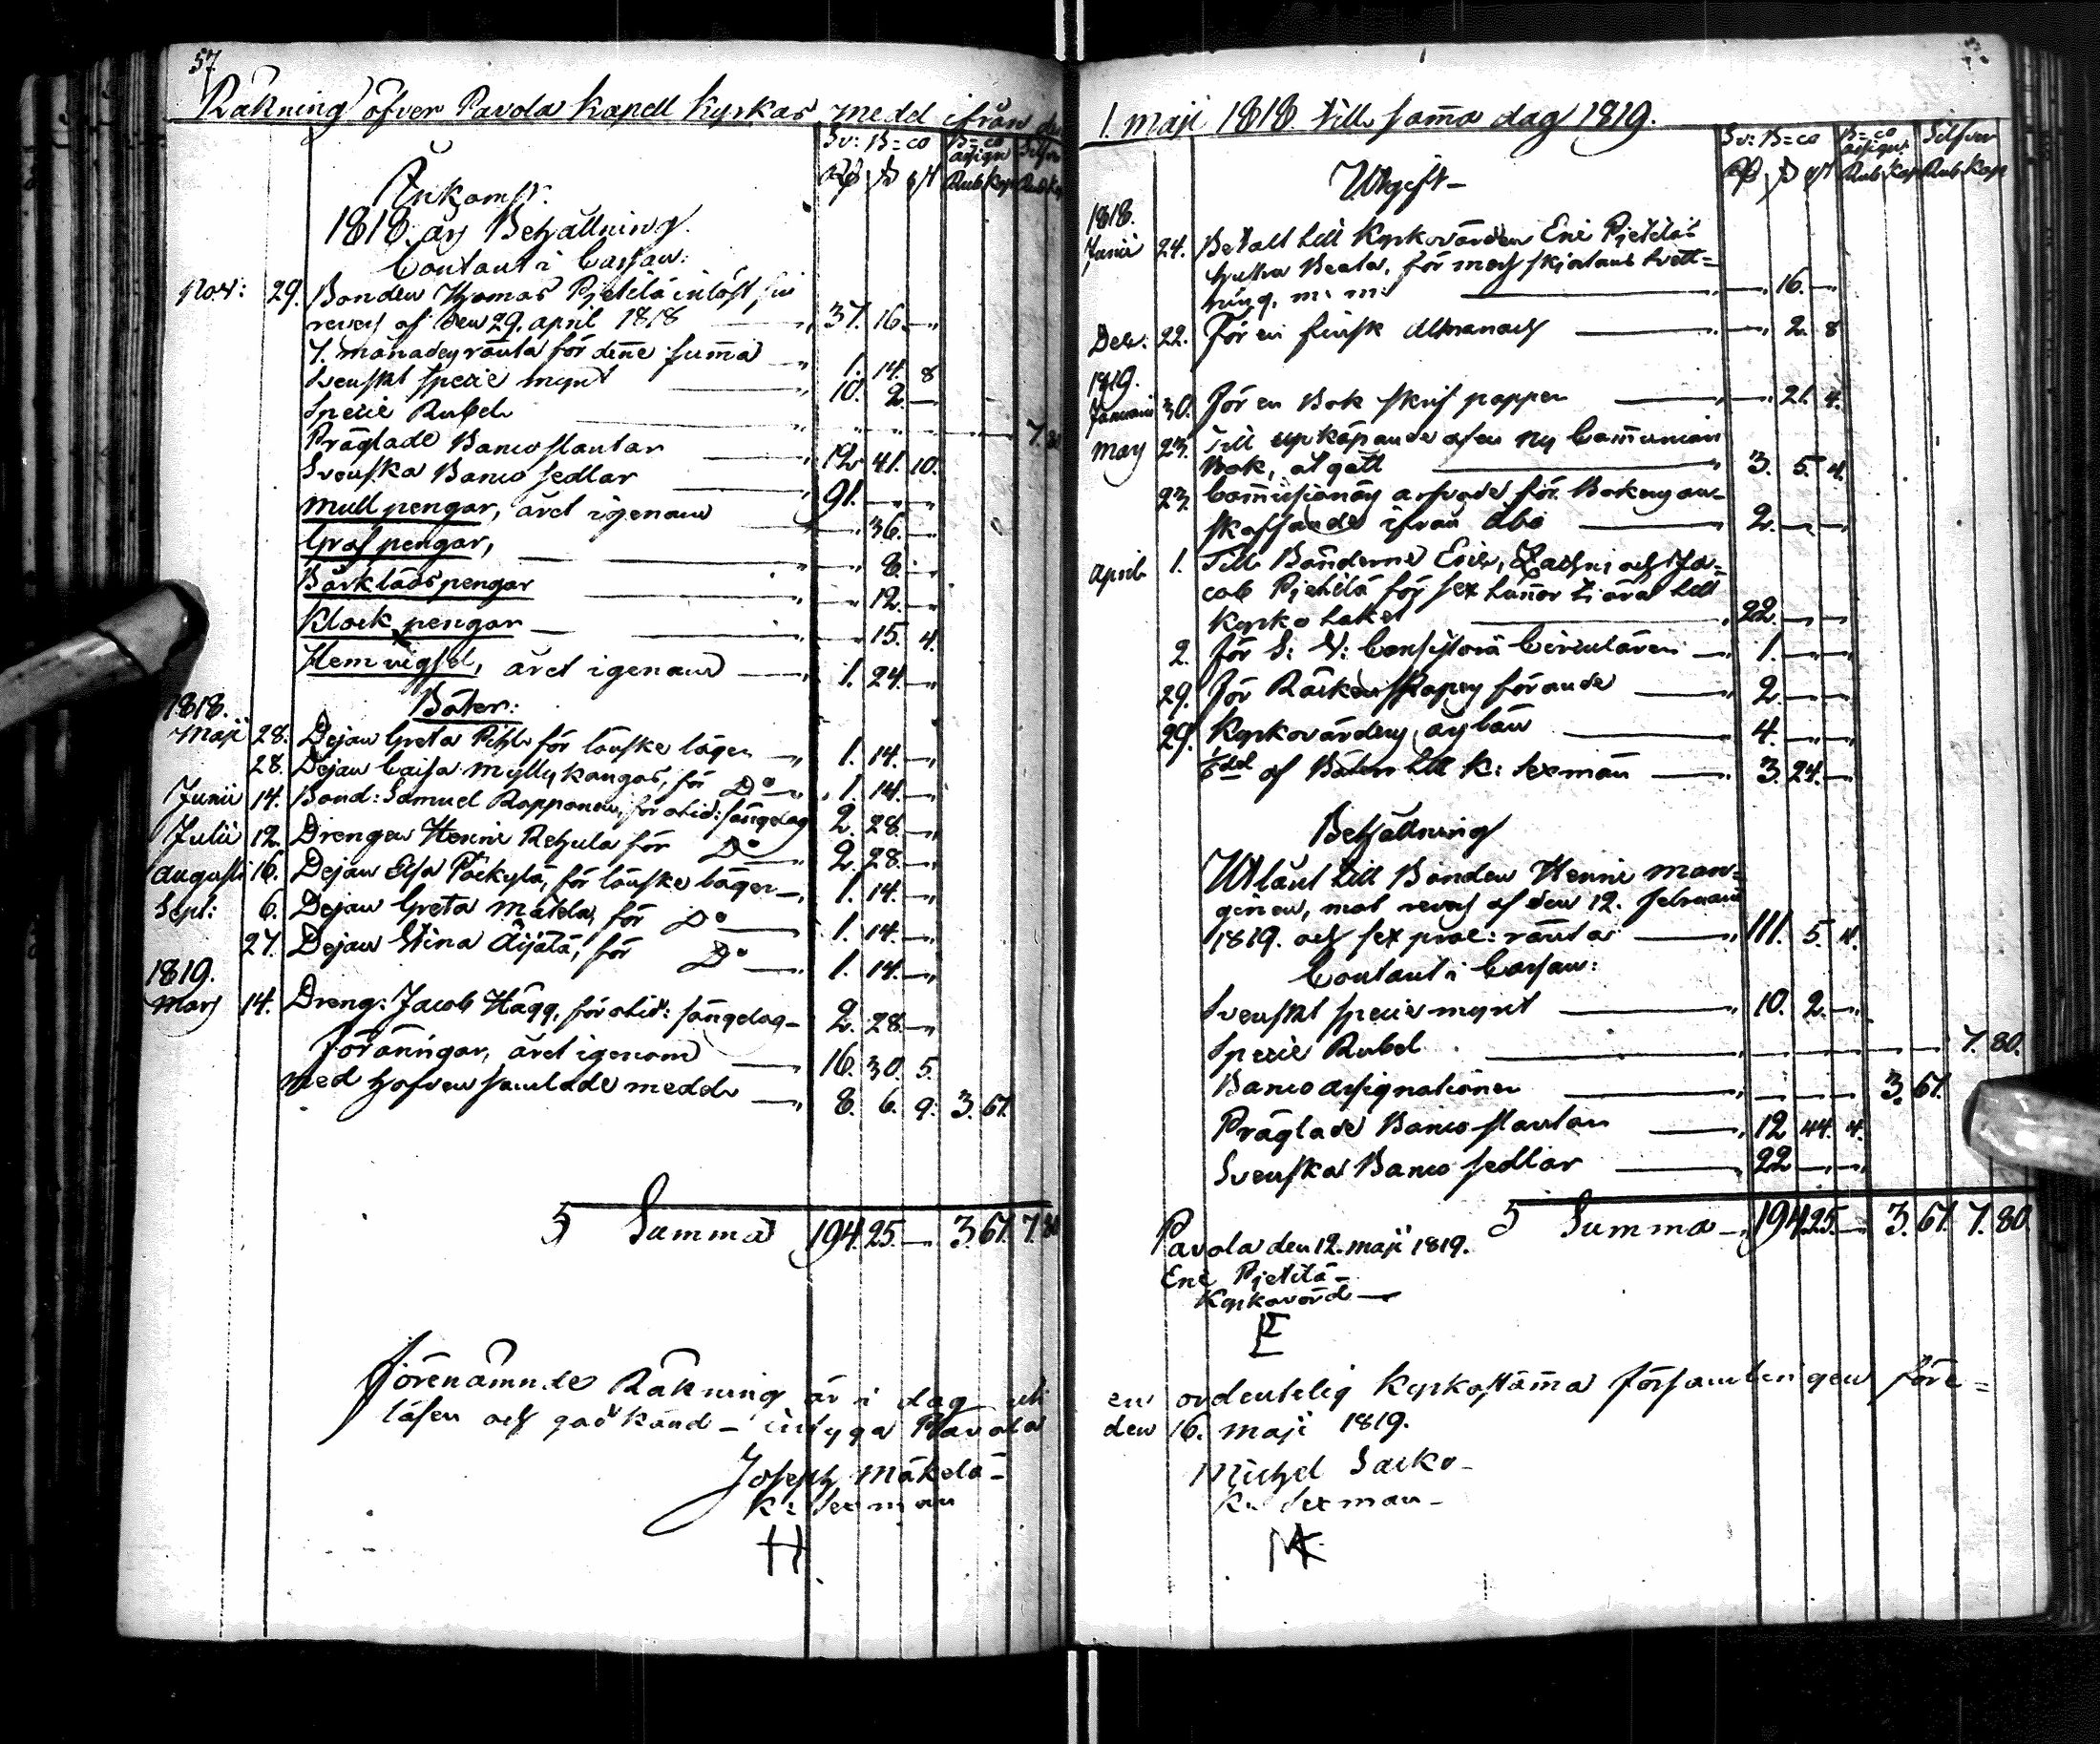 57
Räkning öfver Pavola Kapell Kyrkas medel ifrån den
Sv: B=co B=co assign Silfver
Rd ß rst Rub Kop Rub Kop
Inkomst.
1818. års Behållning.
Contant i Cassan:
Nov: 29. Bonden Thomas Pjetilä inlöst sin
revers af den 29. april 1818 37. 16. —
7. månaders ränta för denne summa 1. 14. 8
Svenskt specie mynt 10. 2. —
Specie Rubel 7. 80
Präglade Banco slantar 12 41. 10.
Svenska Banco sedlar 91. — —
Mull pengar, året igenom — 36. —
Graf pengar, — 8. —
Bårklädspengar — 12. —
Klock pengar — 15. 4.
Hemvigsel, året igenom 1. 24. —
Böter:
1818.
Maji 28. Pejan Greta Pihl för lönske läger 1. 14. —
28. Pejan Caisa Myllykangas, för Do 1. 14. —
Junii 14. Bond: Samuel Rapponen, för otid: sängelag 2. 28. —
Julii 12. Drengen Henric Rehula för Do 2. 28. —
Augusti 16. Pejan Elsa Päckylä, för lönske läger 1. 14. —
Sept: 6. Pejan Greta Matela, för Do 1. 14. —
27. Pejan Stina Äijälä, för Do 1. 14. —
1819.
Mars 14. Dreng: Jacob Hägg, för otid: sängelag 2. 28. —
Föräringar, året igenom 16. 30. 5.
Med hofven samlade medel 8. 6. 9. 3. 67.
Summa 194. 25. — 3. 67. 7. 80
Förenämnde Räkning är i dag uti
läsen och godkänd – intyga Pavola
Joseph Mäkelä
K: Sexman
H
1. maji 1818. till samma dag 1819.
Sv: B=co B=co assign. Silfver
Rd ß rst Rub Kop Rub Kop
Utgift
1818.
Junii 24. Betalt till Kyrkovärden Eric Pjetiläs
hustru Beata, för mess skjortans tvätt=
ning, m: m: — 16. —
Dec: 22. För en finsk Almanach — 2. 8
1819.
Januarii 30. För en Bok skrif papper — 21. 4.
Mars 23. Till upköpande af en ny Communion
Bok, åtgått 3. 5. 4.
23. Commissionärs arfvode för Bokens an=
skaffande ifrån Åbo 2. — —
April 1. Till Bönderne Eric, Zachri och Ja=
cob Pjetilä för sex tunnor tjära till
Kyrko taket 22. — —
2. För S: V: Consistorii Circulairen 1. — —
29. För Räkenskapens förande 2. — —
29. Kyrkovärdens årslön 4. — —
1/6 del af Böter till K: Sexmän 3. 24. —
Behållning
Utlånt till Bonden Henric Man=
ginen, mot revers af den 12. februarii
1819. och sex proc: ränta 111. 5. 4.
Contant i Cassan:
Svenskt specie mynt 10. 2. —
Specie Rubel 7. 80.
Banco assignationer 3. 67.
Präglade Banco slantar 12 44. 4.
Svenska Banco sedlar 22 — —
Summa 194. 25. — 3. 67. 7. 80
Pavola den 12. maji 1819.
Eric Pjetilä
Kyrkovärd
E
en ordentelig Kyrkostämma församlingen före=
den 16. maji 1819.
Michel Sarko
K: Sexman